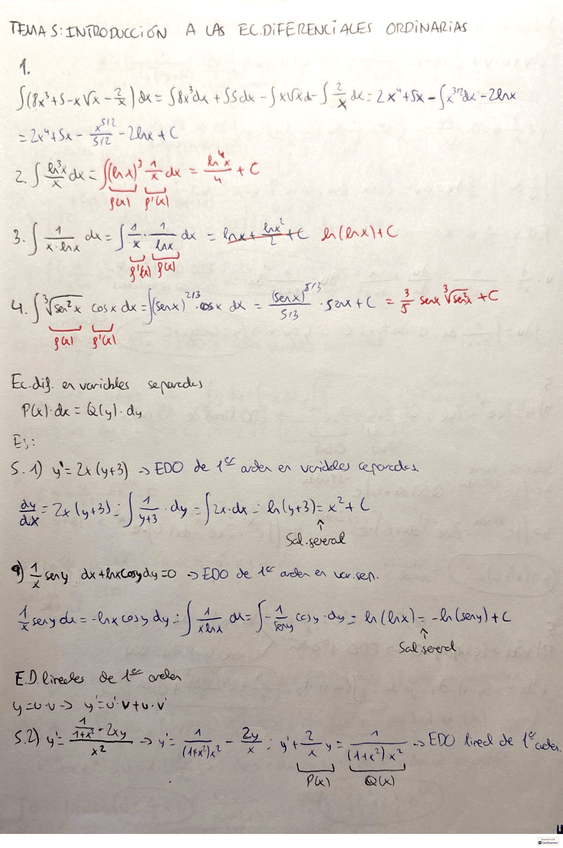 TEMA 5: INTRODUCCIÓN A LAS EC. DIFERENCIALES ORDINARIAS
1.
∫(8x³+5-x√x-2/x)dx = ∫8x³dx+∫5dx-∫x√xd-∫2/x dx = 2x⁴+5x-∫x^(3/2)dx-2lnx
= 2x⁴+5x - x^(5/2)/(5/2) - 2lnx + C
2. ∫ ln³x/x dx = ∫(lnx)³ 1/x dx = ln⁴x/4 + C
f(x) f'(x)
3. ∫ 1/(x·lnx) dx = ∫ 1/x · 1/lnx dx = lnx + lnx²/2 + C ln(lnx)+C
f'(x) f(x)
4. ∫ ³√sen²x cosx dx = ∫(senx)^(2/3) · cosx dx = (senx)^(5/3)/(5/3) · senx + C = 3/5 senx ³√sen²x + C
f(x) f'(x)
Ec.dif. en variables separadas
P(x)·dx = Q(y)·dy
Ej:
5. 1) y' = 2x(y+3) → EDO de 1er orden en variables separadas
dy/dx = 2x(y+3) = ∫ 1/(y+3) · dy = ∫2x·dx = ln(y+3) = x² + C
↑
Sol. general
9) 1/x seny dx + lnxcosydy = 0 → EDO de 1er orden en var. sep.
1/x seny dx = -lnx cosy dy = ∫ 1/(xlnx) dx = ∫ -1/seny cosy · dy = ln(lnx) = -ln(seny) + C
↑
Sol. general
E.D. lineales de 1er orden
y = u·v → y' = u'·v + u·v'
5.2) y' = (1/(1+x²) - 2xy)/x² → y' = 1/((1+x²)x²) - 2y/x ; y' + 2/x y = 1/((1+x²)x²) → EDO lineal de 1er orden.
P(x) Q(x)